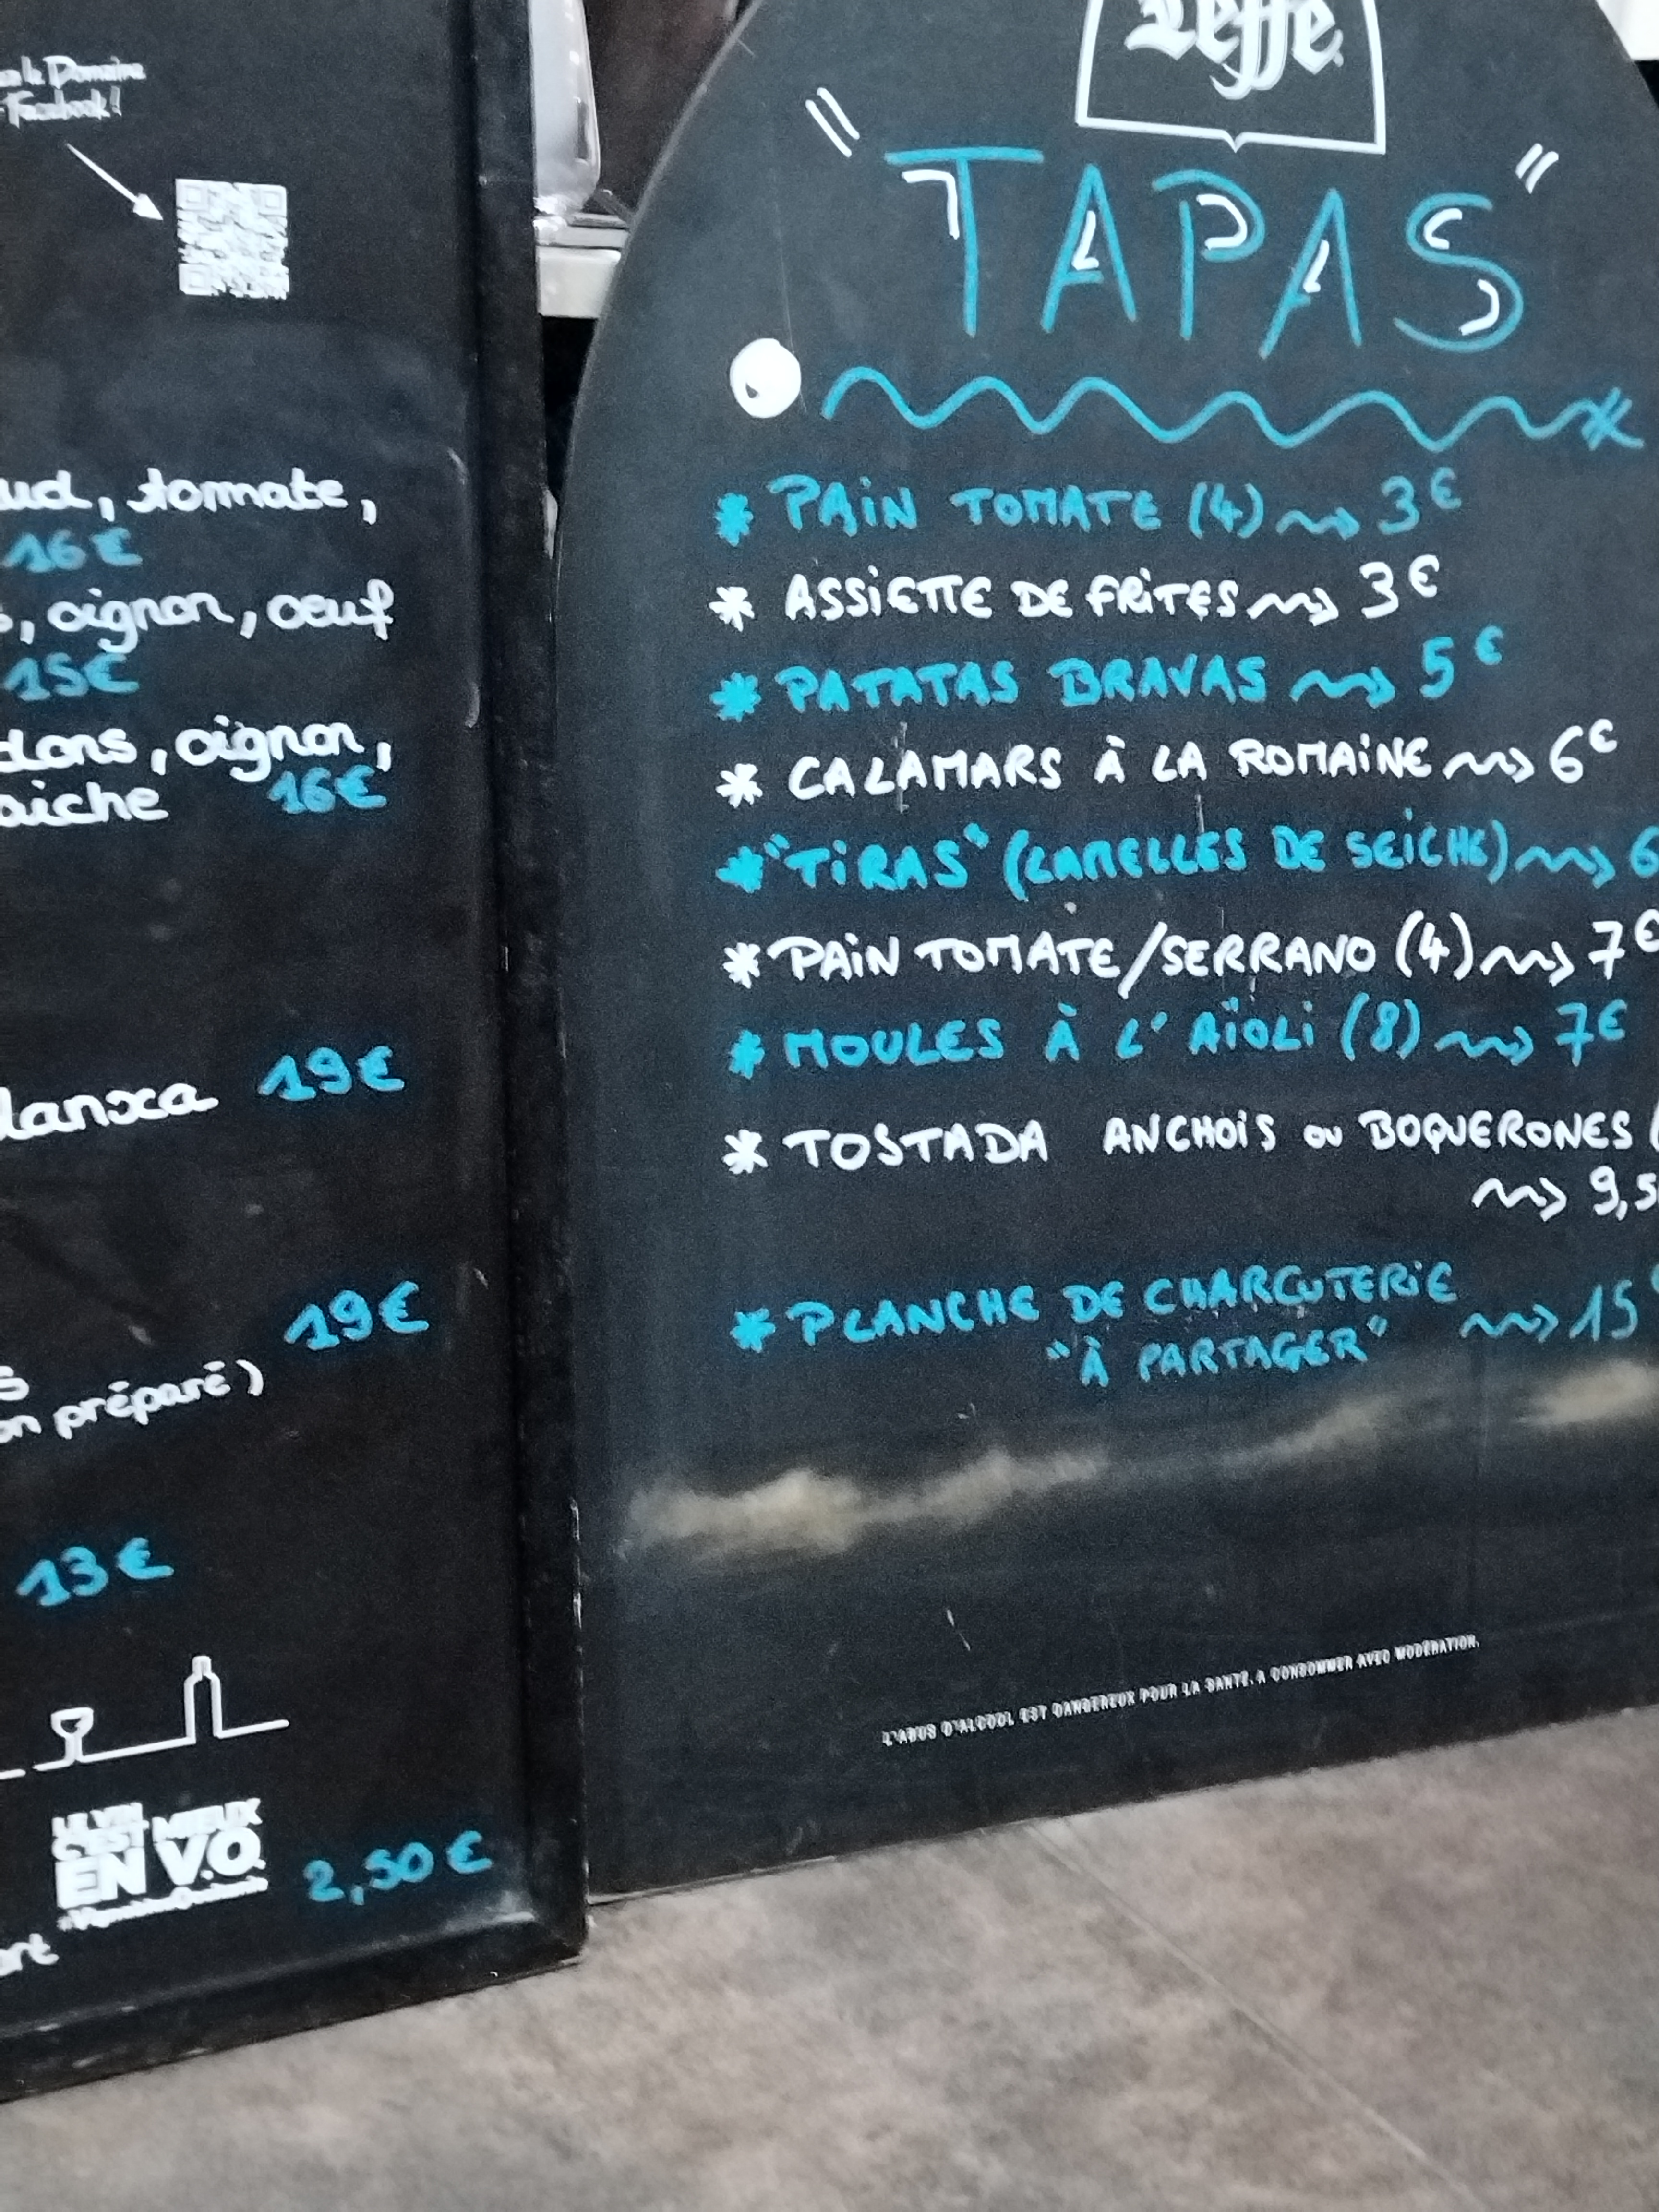 le Domaine
Facebook !
ud, tomate,
16€
, oignon, oeuf
15€
dons, oignon,
aiche 16€
lanxa 19€
19€
s
on préparé)
13€
C'EST MIEUX
EN V.O.
2,50€
Leffe
"TAPAS"
* PAIN TOMATE (4) ~~> 3€
* ASSIETTE DE FRITES ~~> 3€
* PATATAS BRAVAS ~~> 5€
* CALAMARS À LA ROMAINE ~~> 6€
* "TIRAS" (LAMELLES DE SEICHE) ~~> 6
* PAIN TOMATE/SERRANO (4) ~~> 7€
* MOULES À L'AÏOLI (8) ~~> 7€
* TOSTADA ANCHOIS OU BOQUERONES (
~~> 9,5
* PLANCHE DE CHARCUTERIE
"À PARTAGER" ~~> 15€
L'ABUS D'ALCOOL EST DANGEREUX POUR LA SANTÉ. A CONSOMMER AVEC MODÉRATION.